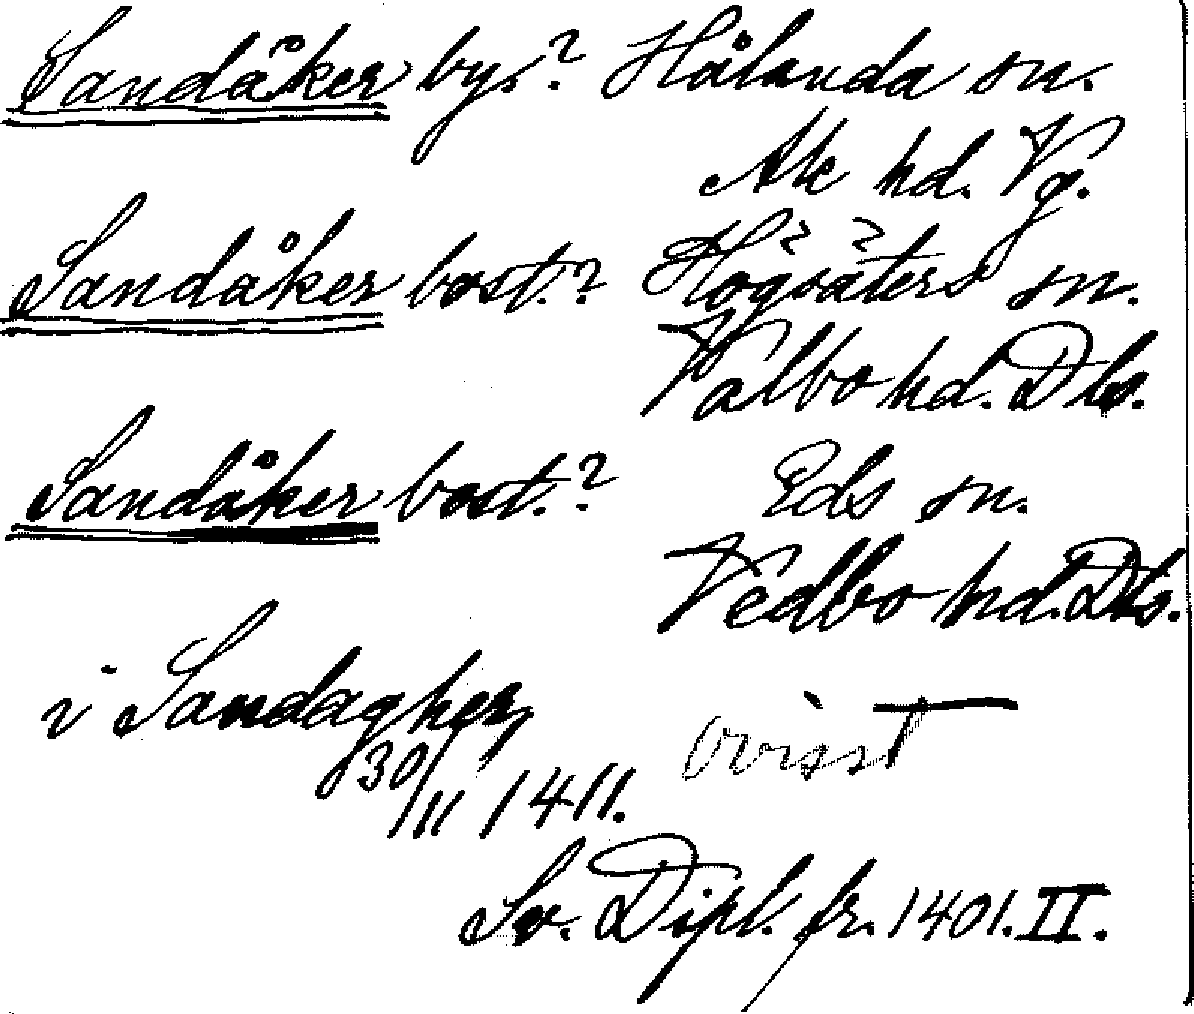 Sandåker by.? Hålanda sn.
Ale hd. Vg.
Sandåker bost.? Högsäters sn.
Valbo hd. Dls.
Sandåker bost.? Eds sn.
Vedbo hd. Dls.
i Sandagher,
30/11 1411. Ovisst
Sv. Dipl. fr. 1401. II.